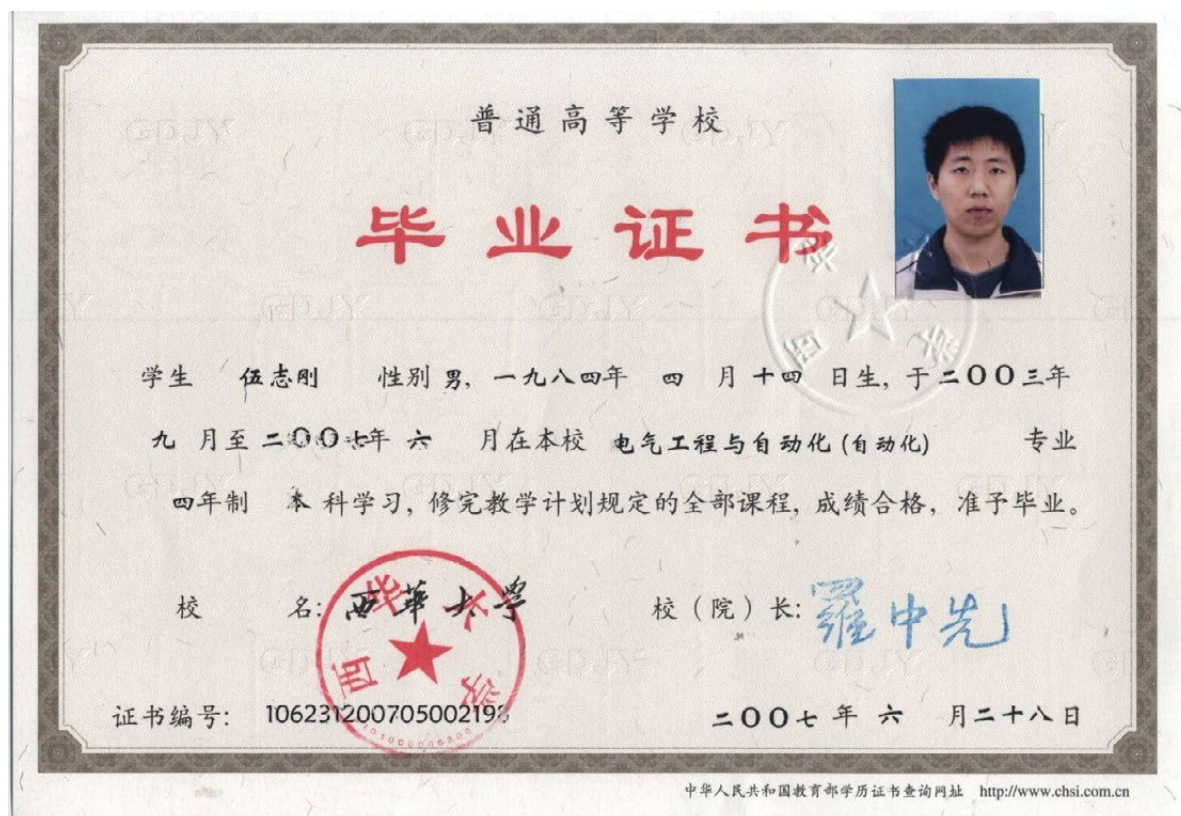 普通高等学校
毕业证书
学生 伍志刚 性别 男, 一九八四年 四 月 十四 日生, 于 二〇〇三年
九 月至 二〇〇七年 六 月在本校 电气工程与自动化(自动化) 专业
四年制 本 科学习, 修完教学计划规定的全部课程, 成绩合格, 准予毕业。
校 名: 西華大学 校（院）长: 羅中先
西华大学
证书编号: 106231200705002198 二〇〇七 年 六 月二十八日
中华人民共和国教育部学历证书查询网址 http://www.chsi.com.cn